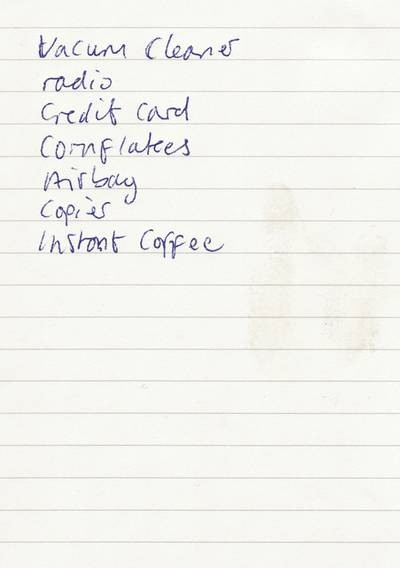 Vacum Cleaner
radio
Credit Card
Cornflakees
Airbag
Copier
Instant Coffee